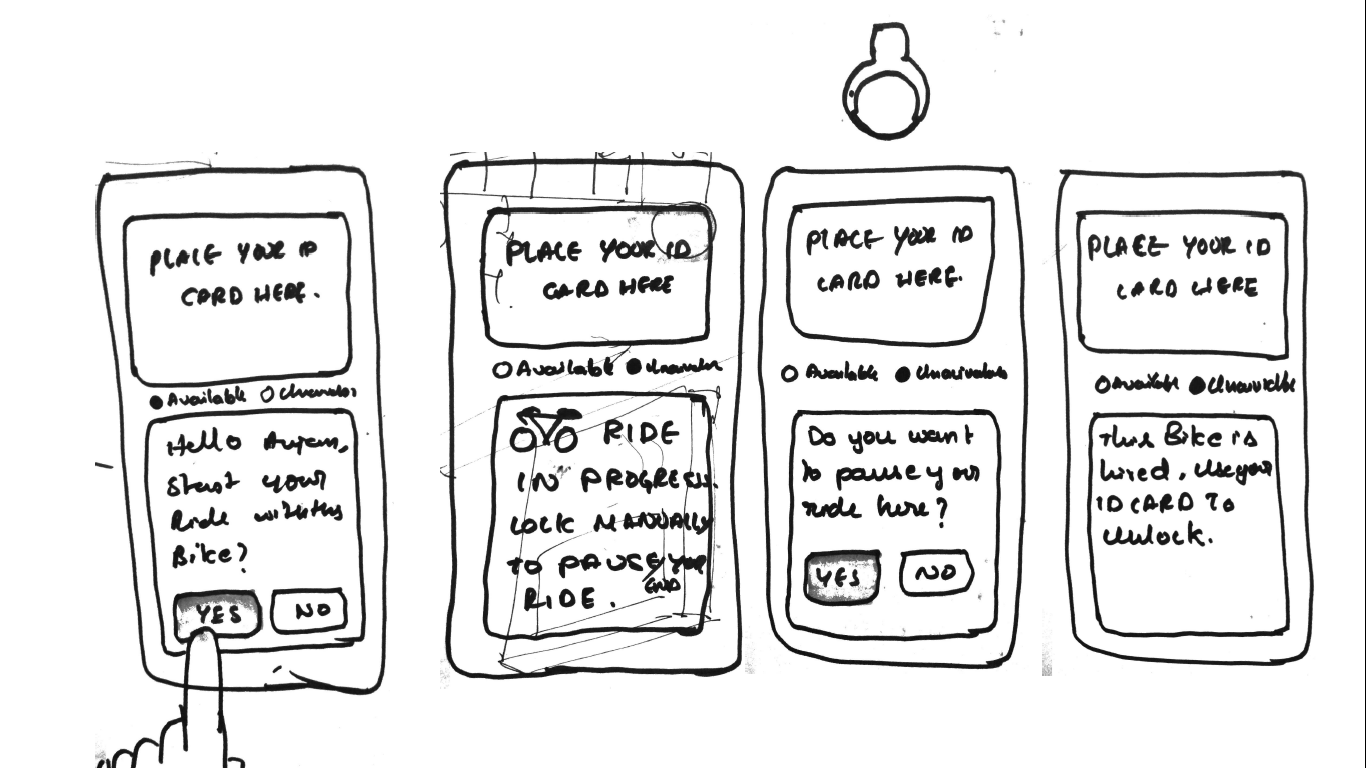 PLACE YOUR ID
CARD HERE.
Available
Hello
Start your
Ride
Bike?
YES NO
PLACE YOUR ID
CARD HERE
Available
RIDE
IN PROGRESS.
LOCK MANUALLY
TO PAUSE/ YOUR
END
RIDE.
PLACE YOUR ID
CARD HERE.
Available
Do you want
to pause your
ride here?
YES NO
PLACE YOUR ID
CARD HERE
Available
This Bike is
hired. Use your
ID CARD TO
Unlock.